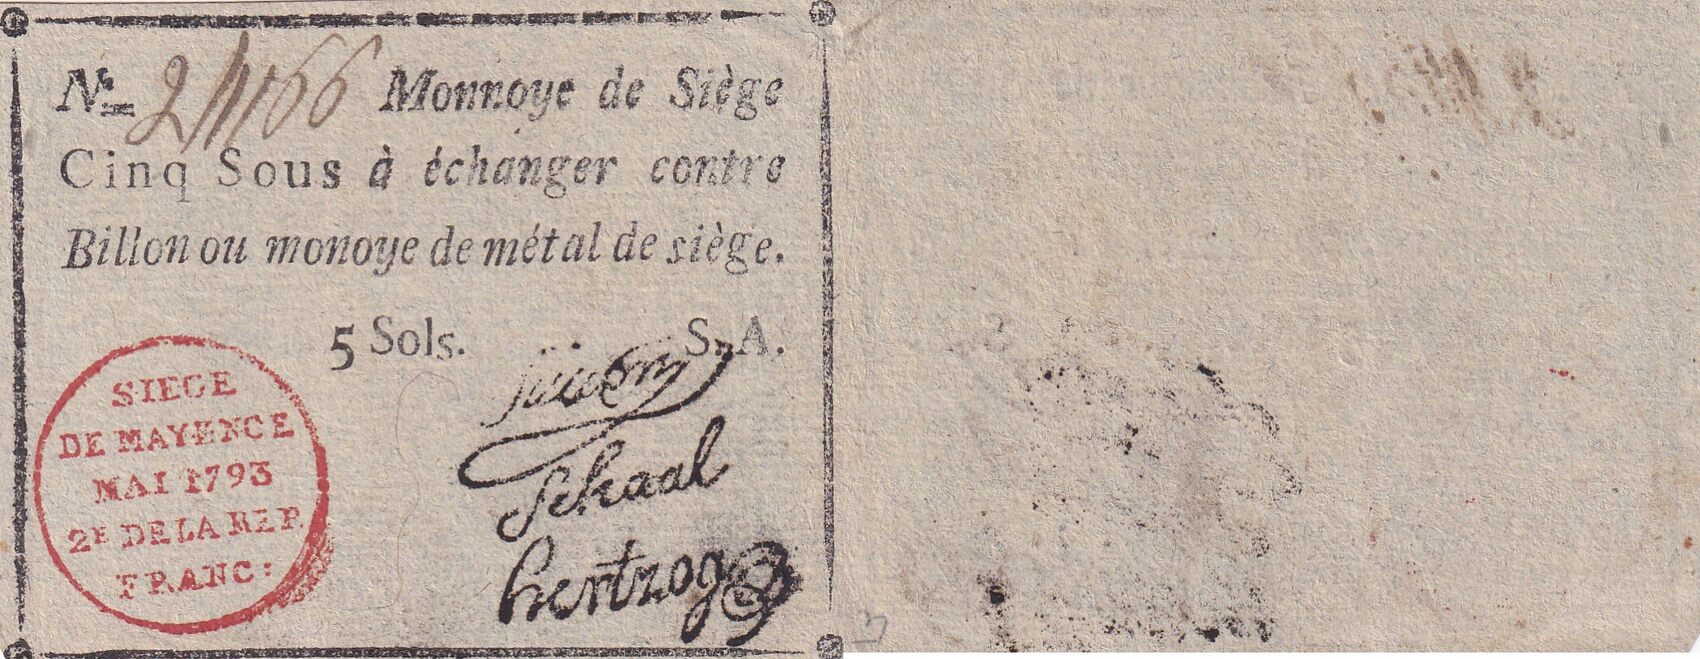 No 24166 Monnoye de Siège
Cinq Sous à échanger contre
Billon ou monoye de métal de siège.
5 Sols. S. A.
SIEGE
DE MAYENCE
MAI 1793
2E DE LA REP
FRANC:
Schaal
hertzog
3